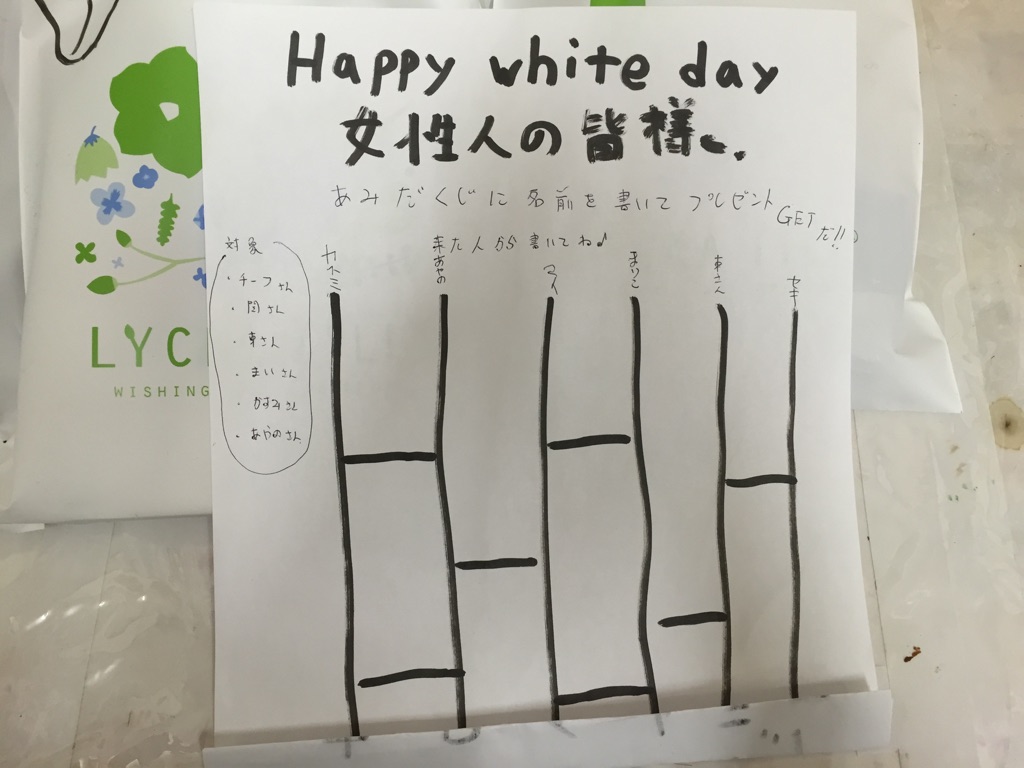 Happy white day
女性人の皆様へ
あみだくじに名前を書いてプレゼント
GETだ!!
来た人から書いてね♪
対象
・チーフさん
・関さん
・車さん
・まいさん
・かすみさん
・あやのさん
カスミ
あやの
マイ
まりこ
車さん
セキ
LYC
WISHING